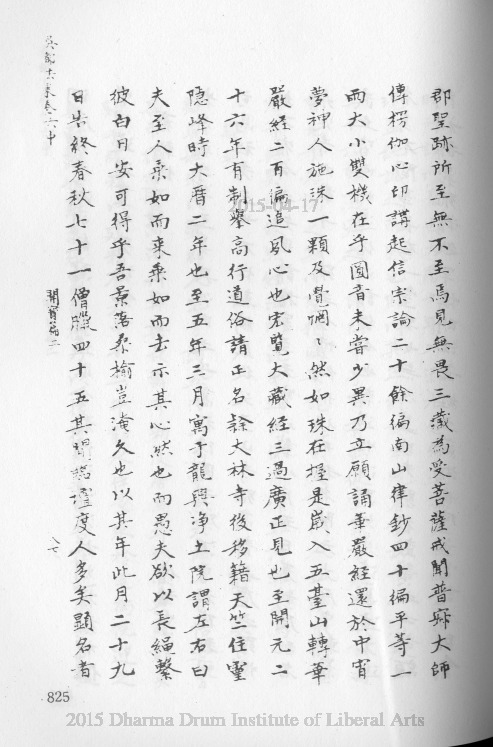 郡聖跡所至無不至焉見無畏三藏為受菩薩戒聞普寂大師
傳楞伽心印講起信宗論二十餘徧南山律鈔四十徧平等一
雨大小雙機在乎圓音未嘗少異乃立願誦華嚴經還於中宵
夢神人施珠一顆及覺惘惘然如珠在握是歲入五臺山轉華
嚴經二百徧追夙心也宏覽大藏經三過廣正見也至開元二
十六年有制舉高行道俗請正名隸大林寺後移籍天竺住靈
隱峰時大曆二年也至五年三月寓于龍興净土院謂左右曰
夫至人乘如而來乘如而去示其心然也而愚夫欲以長繩繫
彼白日安可得乎吾景落桑榆豈淹久也以其年此月二十九
日告終春秋七十一僧臘四十五其開臨壇度人多矣顯名者
開寶篇二
八七
825
2015-04-17
2015 Dharma Drum Institute of Liberal Arts